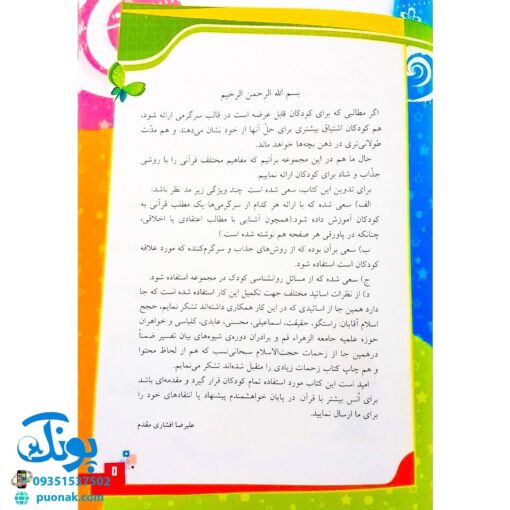 بسم الله الرحمن الرحیم
اگر مطالبی که برای کودکان قابل عرضه است در قالب سرگرمی ارائه شود،
هم کودکان اشتیاق بیشتری برای حلّ آنها از خود نشان می‌دهند و هم مدّت
طولانی‌تری در ذهن بچه‌ها خواهد ماند.
حال ما هم در این مجموعه برآنیم که مفاهیم مختلف قرآنی را با روشی
جذّاب و شاد برای کودکان ارائه نماییم.
برای تدوین این کتاب، سعی شده است چند ویژگی زیر مد نظر باشد:
الف) سعی شده که با ارائه هر کدام از سرگرمی‌ها یک مطلب قرآنی به
کودکان آموزش داده شود.(همچون آشنایی با مطالب اعتقادی یا اخلاقی،
چنانکه در پاورقی هر صفحه هم نوشته شده است.)
ب) سعی برآن بوده که از روش‌های جذاب و سرگرم‌کننده که مورد علاقه
کودکان است استفاده شود.
ج) سعی شده که از مسائل روانشناسی کودک در مجموعه استفاده شود.
د) از نظرات اساتید مختلف جهت تکمیل این کار استفاده شده است که جا
دارد همین جا از اساتیدی که در این کار همکاری داشته‌اند تشکر نمایم، حجج
اسلام آقایان: راستگو، حقیقت، اسماعیلی، محسنی، عابدی، کلباسی و خواهران
حوزه علمیه جامعه الزهراء قم و برادران دوره‌ی شیوه‌های بیان تفسیر ضمناً
درهمین جا از زحمات حجت‌الاسلام سبحانی‌نسب که هم از لحاظ محتوا
و هم چاپ کتاب زحمات زیادی را متقبل شده‌اند تشکر می‌نمایم.
امید است این کتاب مورد استفاده تمام کودکان قرار گیرد و مقدمه‌ای باشد
برای اُنس بیشتر با قرآن. در پایان خواهشمندم پیشنهاد یا انتقادهای خود را
برای ما ارسال نمایید.
علیرضا افشاری مقدم
۵
پونک
09351537502
puonak.com